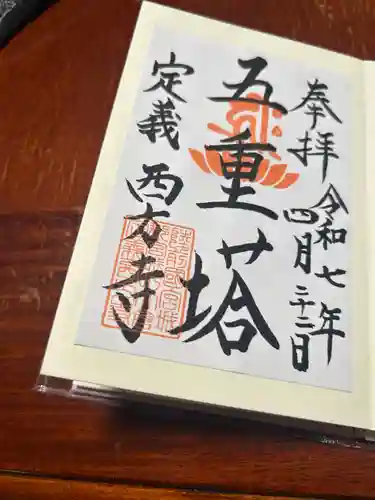 奉拝
令和七年
四月二十二日
五重塔
定義
西方寺